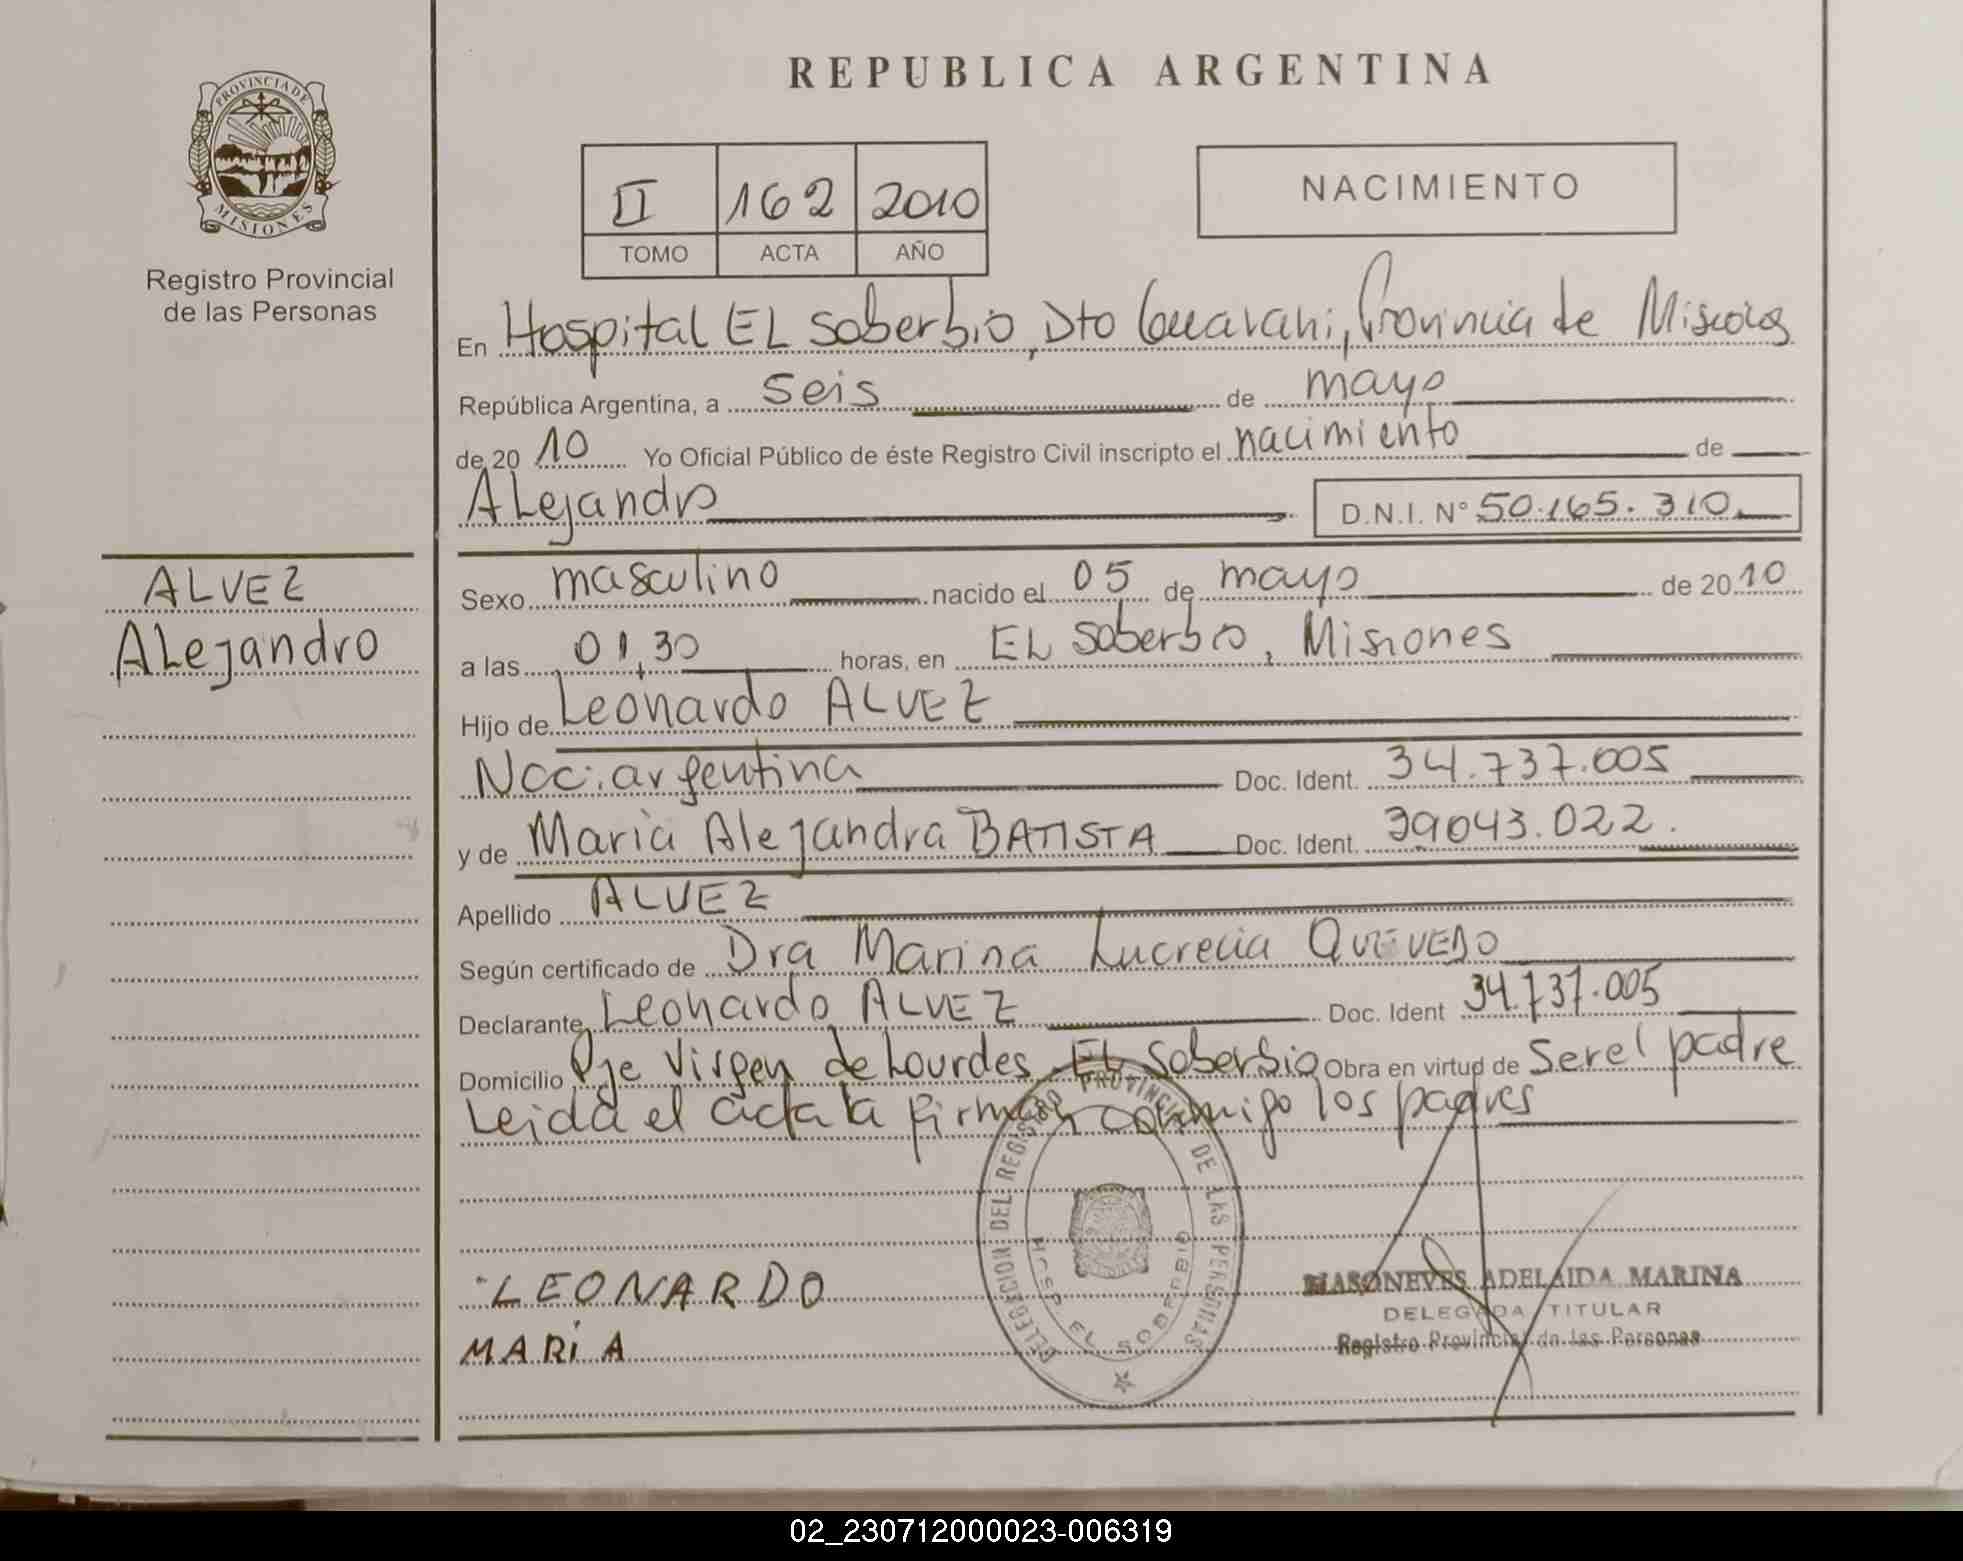 REPUBLICA ARGENTINA
PROVINCIA DE
MISIONES
Registro Provincial
de las Personas
II 162 2010
TOMO ACTA AÑO
NACIMIENTO
En Hospital EL Soberbio, Dto Guarani, Provincia de Misiones
República Argentina, a seis de mayo
de 20 10 Yo Oficial Público de éste Registro Civil inscripto el nacimiento de
ALejandro D.N.I. N° 50.165.310
ALVEZ
ALejandro
Sexo masculino nacido el 05 de mayo de 2010
a las 01,30 horas, en EL Soberbio, Misiones
Hijo de Leonardo ALVEZ
Nac: argentina Doc. Ident. 34.737.005
y de Maria Alejandra BATISTA Doc. Ident. 39043.022.
Apellido ALVEZ
Según certificado de Dra Marina Lucrecia QUEVEDO
Declarante Leonardo ALVEZ Doc. Ident 34.737.005
Domicilio Pje Virgen de Lourdes - EL Soberbio Obra en virtud de Ser el padre
Leida el acta la firman conmigo los padres
DELEGACION DEL REGISTRO PROVINCIAL DE LAS PERSONAS
HOSP. EL SOBERBIO
LEONARDO
MARIA
MASONEVES ADELAIDA MARINA
DELEGADA TITULAR
Registro Provincial de las Personas
02_230712000023-006319